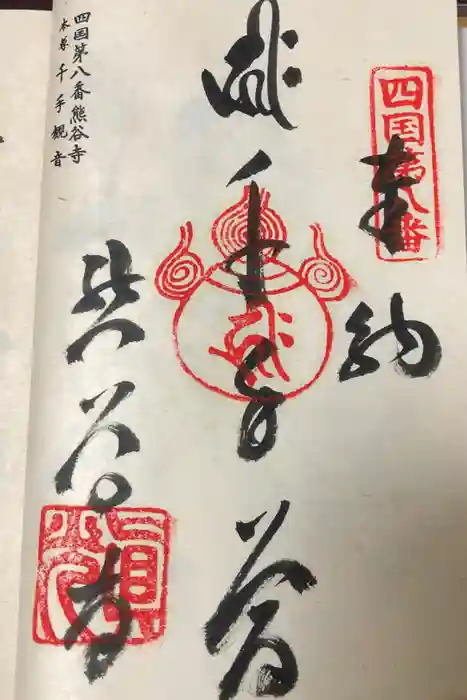 四国第八番
奉納
千手
熊谷寺
四国第八番熊谷寺
本尊 千手観音